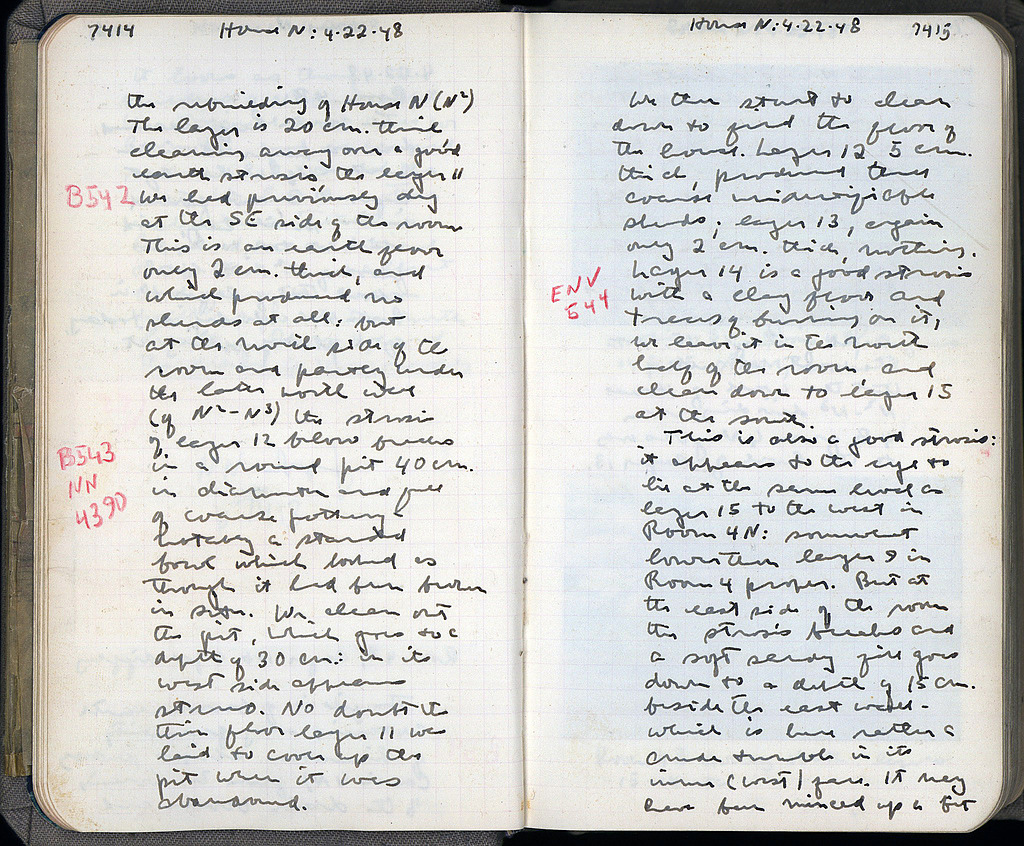 7414 House N: 4.22.48
the rebuilding of House N (N²)
The layer is 20 cm. thick
cleaning away over a good
earth strosis the layer 11
B542 we had previously dug
at the SE side of the room
This is an earth floor
only 2 cm. thick, and
which produced no
sherds at all: but
at the north side of the
room and partly under
the later north wall
(of N²-N³) the strosis
of layer 12 below breaks
B543
NN
4390
in a round pit 40 cm.
in diameter and full
of coarse pottery -
notably a standed
bowl which looked as
though it had been broken
in situ. We clean out
the pit, which goes to a
depth of 30 cm: in its
west side appears
stereo. No doubt the
thin floor layer 11 was
laid to cover up the
pit when it was
abandoned.
House N: 4.22.48 7415
We then start to clean
down to find the floor of
the house. Layer 12 5 cm.
thick, produced three
coarse unidentifiable
sherds; layer 13, again
only 2 cm. thick, nothing.
ENV
544
Layer 14 is a good strosis
with a clay floor and
traces of burning on it;
we leave it in the north
half of the room and
clean down to layer 15
at the south.
This is also a good strosis:
it appears to the eye to
lie at the same level as
layer 15 to the west in
Room 4N: somewhat
lower than layer 9 in
Room 4 proper. But at
the east side of the room
the strosis breaks and
a soft sandy fill goes
down to a depth of 15 cm.
beside the east wall -
which is here rather a
crude tumble in its
inner (west) face. It may
have been minced up a bit